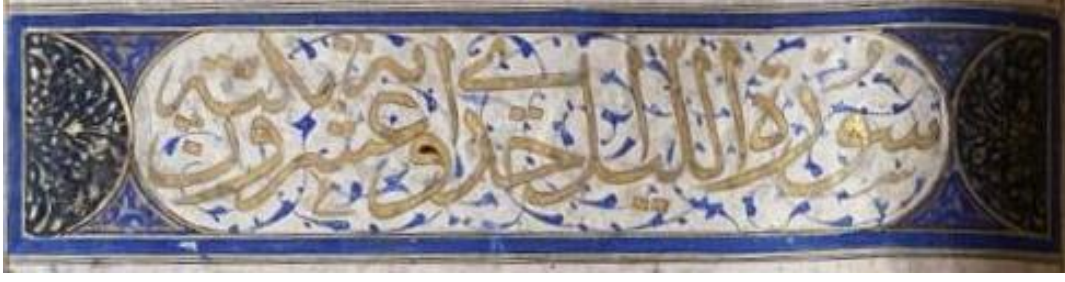 سورة الليل احدى وعشرون اية